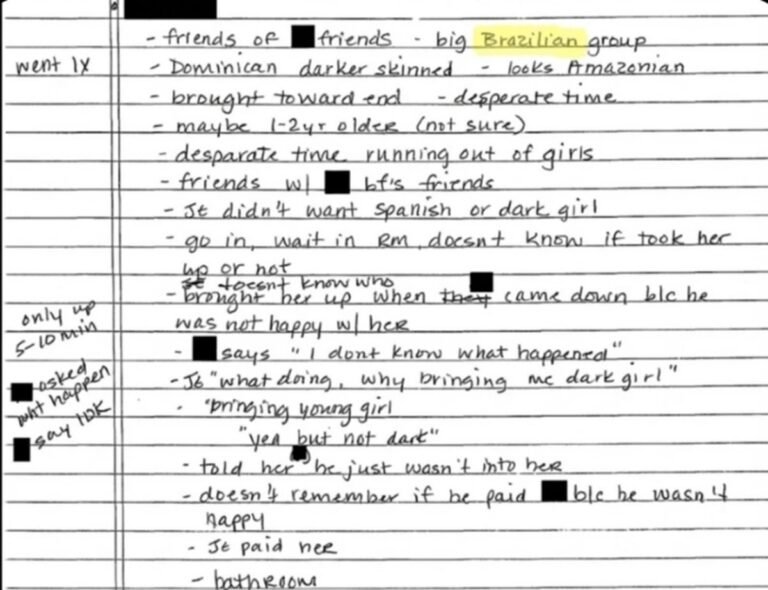 - friends of friends - big Brazilian group
went 1x
- Dominican darker skinned - looks Amazonian
- brought toward end - desperate time
- maybe 1-2yr older (not sure)
- desparate time running out of girls
- friends w/ bf's friends
- JE didn't want Spanish or dark girl
- go in, wait in RM, doesn't know if took her
up or not
doesnt know who
- brought her up when they came down b/c he
was not happy w/ her
only up
5-10 min
- says "I dont know what happened"
asked
wht happen
say IDK
- JE "what doing, why bringing me dark girl"
- "bringing young girl
"yea but not dark"
- told her he just wasn't into her
- doesn't remember if he paid b/c he wasn't
happy
- JE paid her
- bathroom